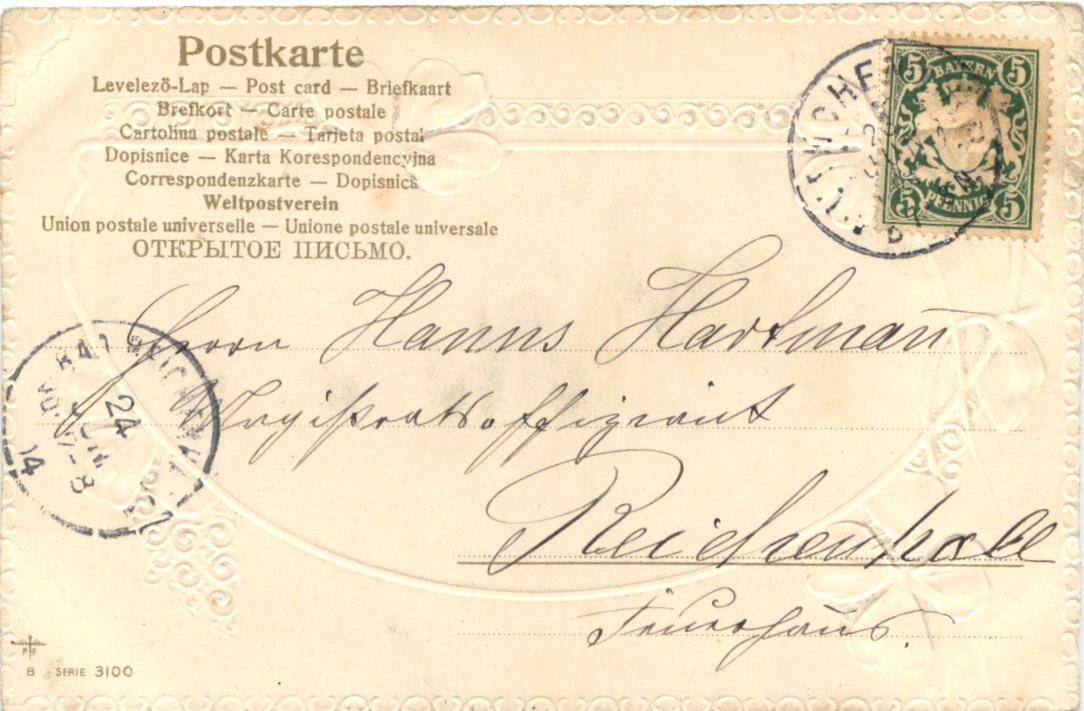 Postkarte
Levelező-Lap — Post card — Briefkaart
Brefkort — Carte postale
Cartolina postale — Tarjeta postal
Dopisnice — Karta Korespondencyjna
Correspondenzkarte — Dopisnica
Weltpostverein
Union postale universelle — Unione postale universale
ОТКРЫТОЕ ПИСЬМО.
5 BAYERN 5
5 PFENNIG 5
Herrn Hanns Hartman̄
Magistratsoffiziant
Reichenhall
Feuerhaus.
24
8-9
04
B SERIE 3100